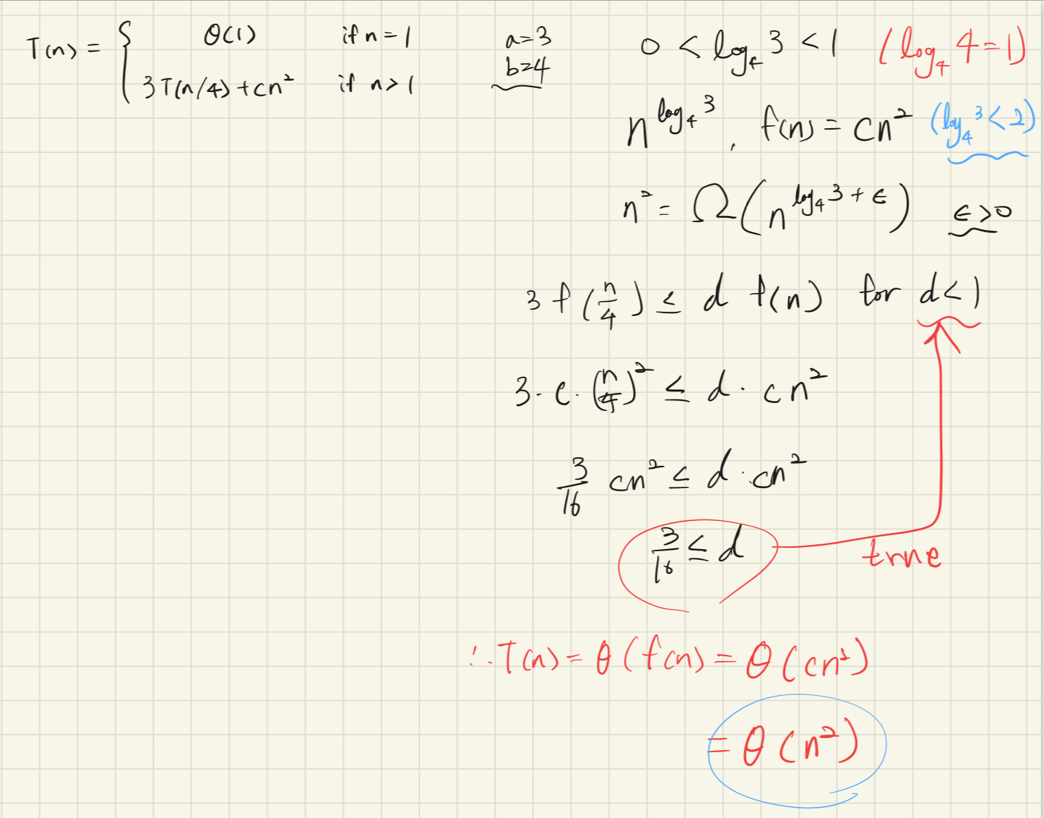 T(n) = { Θ(1) if n = 1
3T(n/4) + cn² if n > 1
a=3
b=4
0 < log₄ 3 < 1 (log₄ 4 = 1)
n^(log₄ 3), f(n) = cn² (log₄ 3 < 2)
n² = Ω(n^(log₄ 3 + ε)) ε > 0
3 f(n/4) ≤ d f(n) for d < 1
3 · c · (n/4)² ≤ d · cn²
3/16 cn² ≤ d · cn²
3/16 ≤ d
true
∴ T(n) = θ(f(n) = θ(cn²)
= θ(n²)